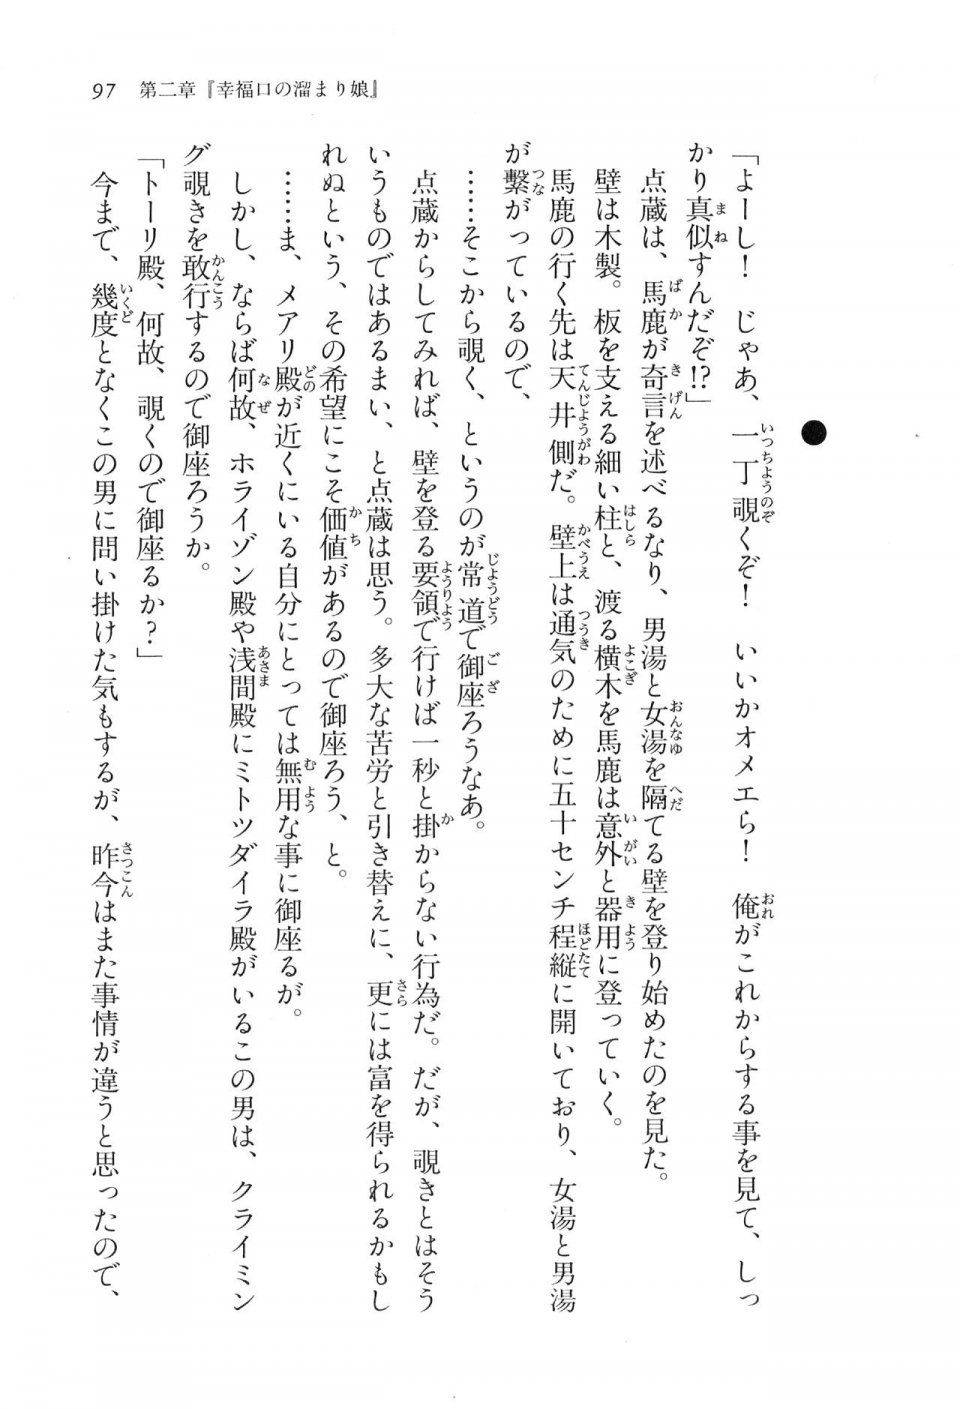 97　第二章『幸福口の溜まり娘』
●
「よーし！　じゃあ、一丁覗くぞ！　いいかオメエら！　俺がこれからする事を見て、しっ
かり真似すんだぞ!?」
　点蔵は、馬鹿が奇言を述べるなり、男湯と女湯を隔てる壁を登り始めたのを見た。
　壁は木製。板を支える細い柱と、渡る横木を馬鹿は意外と器用に登っていく。
　馬鹿の行く先は天井側だ。壁上は通気のために五十センチ程縦に開いており、女湯と男湯
が繋がっているので、
　……そこから覗く、というのが常道で御座ろうなあ。
　点蔵からしてみれば、壁を登る要領で行けば一秒と掛からない行為だ。だが、覗きとはそう
いうものではあるまい、と点蔵は思う。多大な苦労と引き替えに、更には富を得られるかもし
れぬという、その希望にこそ価値があるので御座ろう、と。
　……ま、メアリ殿が近くにいる自分にとっては無用な事に御座るが。
　しかし、ならば何故、ホライゾン殿や浅間殿にミトツダイラ殿がいるこの男は、クライミン
グ覗きを敢行するので御座ろうか。
「トーリ殿、何故、覗くので御座るか？」
　今まで、幾度となくこの男に問い掛けた気もするが、昨今はまた事情が違うと思ったので、